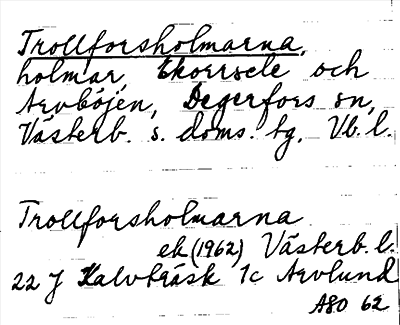 Trollforsholmarna,
holmar, Ekorrsele och
Arvböjen, Degerfors sn,
Västerb. s. doms. tg, Vb. l.
Trollforsholmarna
ek (1962) Västerb. l.
22 J Kalvträsk 1c Arvlund
ASO 62